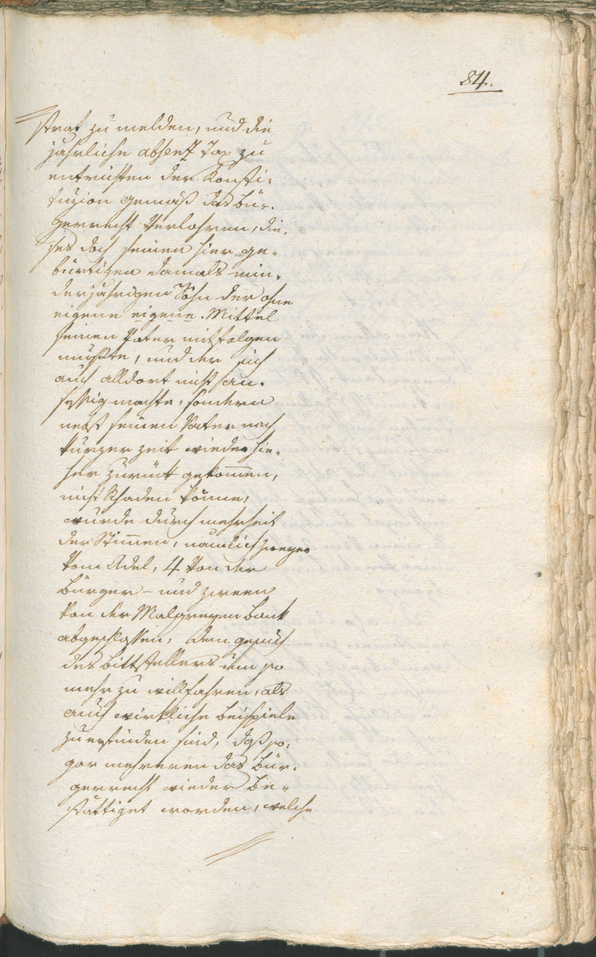 84.
strat zu melden, und die
jährliche absent Tax zu
entrichten der Konsti¬
tuzion gemäß das Bür¬
gerrecht verlohren, die¬
ses doch seinen hier ge¬
bürtigen damals min¬
derjährigen Sohn der ohne
eigene eigene Mittel
seinen Vater mitfolgen
mußte, und der sich
auch alldort nicht an¬
seßig machte, sondern
nebst seinen Vater nach
kurzer zeit wieder hie¬
her zurück gekommen,
nicht schaden könne,
wurde durch mehrheit
der Stimmen, nämlich zweyer
vom Adel, 4 von der
Bürger- und zween
von der Malgreyen Bank
abgeschlossen, dem gesuch
des bittstellers um so
mehr zu willfahren, als
auch wirkliche beispiele
zu erfinden sind, daß so¬
gar mehreren das Bür¬
gerrecht wieder be¬
stättiget worden, welche